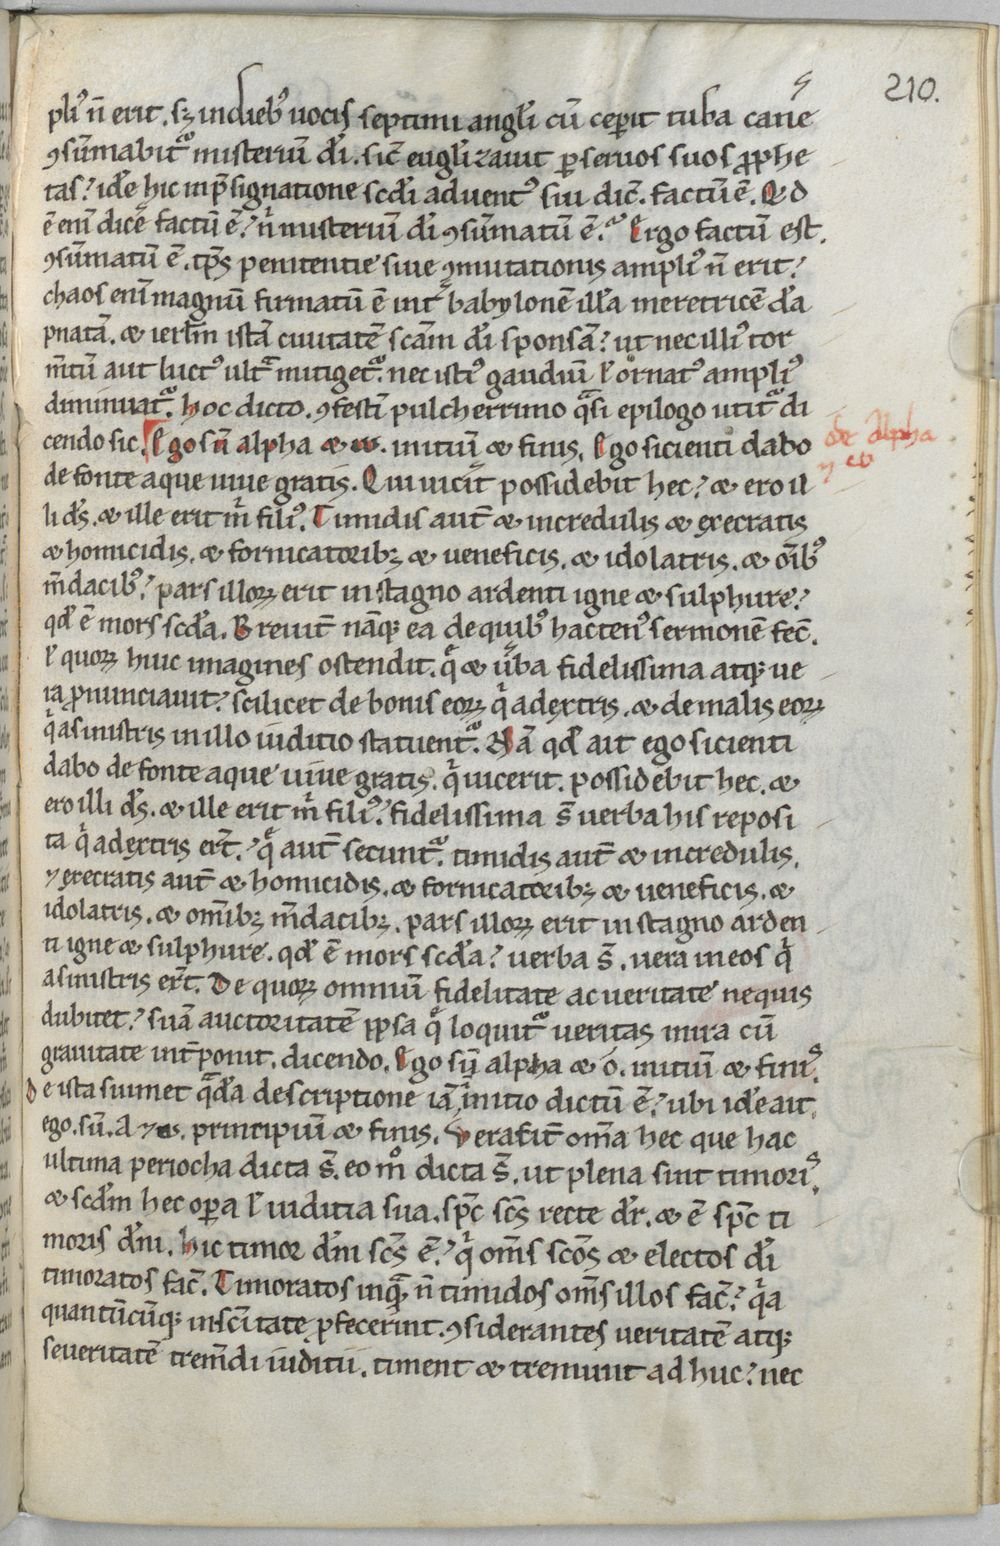 210.
pliꝰ n̄ erit. sꝫ in diebꝰ uocis septimi angl̄i cū ceꝑit tuba cane
ꝯsūmabit᷑ misteriū dī. sic̄ eugl̄izauit ꝑ seruos suos ꝓphe
tas? id̄e hic in p̄signatione scd̄i aduentꝰ sui dic̄. factū ē. Qd
ē enī dicē factū ē? n̄ misteriū dī ꝯsūmatū ē. Ergo factū est.
ꝯsūmatū ē. tp̄s penitentie siue ꝯmutationis ampliꝰ n̄ erit?
chaos enī magnū firmatū ē int̄ babylonē ill̄a meretricē dā
pnatā. ⁊ ierlm̄ istā ciuitatē scām dī sponsā? ut nec illiꝰ tor
m̄tū aut luctꝰ ultᵃ mitiget᷑. nec istiꝰ gaudiū ł ornatꝰ ampliꝰ
diminuat᷑. hoc dicto. ꝯfestī pulcherrimo qᵃsi epilogo utit᷑ di
cendo sic. Ego sū alpha ⁊ ω. initiū ⁊ finis. Ego sicienti dabo
de alpha
⁊ ω
de fonte aque uiue gratis. Qui uicerit possidebit hec? ⁊ ero il
li ds̄. ⁊ ille erit mͥ filiꝰ. Timidis aut̄ ⁊ incredulis ⁊ execratis
⁊ homicidis. ⁊ fornicatoribꝫ ⁊ ueneficis. ⁊ idolatris. ⁊ oīb
m̄dacibꝰ? pars illoꝝ erit in stagno ardenti igne ⁊ sulphure?
qd̄ ē mors scd̄a. Breuit̄ nāqꝫ ea de quibꝰ hactenꝰ sermonē fec̄.
ł quoꝝ huic imagines ostendit. q̄ ⁊ ūba fidelissima atqꝫ ue
ra ꝓnunciauit? scilicet de bonis eoꝝ qͥ a dextris. ⁊ de malis eoꝝ
qͥ a sinistris in illo iuditio statuent᷑. Nā qd̄ ait ego sicienti
dabo de fonte aque uiue gratis. qͥ uicerit. possidebit hec. ⁊
ero illi ds̄. ⁊ ille erit mͥ filiꝰ? fidelissima s̄ uerba his reposi
ta qͥ a dextris er̄t. q̄ aut̄ secunt᷑. timidis aut̄ ⁊ incredulis.
⁊ execratis aut̄ ⁊ homicidis. ⁊ fornicatoribꝫ ⁊ ueneficis. ⁊
idolatris. ⁊ om̄ibꝫ m̄dacibꝫ. pars illoꝝ erit in stagno arden
ti igne ⁊ sulphure. qd̄ ē mors scd̄a? uerba s̄. uera in eos qͥ
a sinistris er̄t. De quoꝝ omniū fidelitate ac ueritate nequis
dubitet? suā auctoritatē ipsa q̄ loquit᷑ ueritas mira cū
grauitate int̄ponit. dicendo. Ego sū alpha ⁊ o. initiū ⁊ finiˢ.
De ista suimet qᵃdā descriptione iā in initio dictū ē? ubi id̄e ait.
ego. sū. A ⁊ ω. principiū ⁊ finis. Verūt̄ om̄a hec que hac
ultima periocha dicta s̄. eo mͦ dicta s̄. ut plena sint timoriˢ.
⁊ scd̄m hec oꝑa ł iuditia sua. sp̄c scs̄ recte dr̄. ⁊ ē sp̄c ti
moris dn̄i. hic timor dn̄i scs̄ ē? qͥ om̄s scōs ⁊ electos dī
timoratos fac̄. Timoratos inqᵃ. n̄ timidos om̄s illos fac̄? qͥa
quantūcūqꝫ in scītate ꝓfecerint. ꝯsiderantes ueritatē atqꝫ
seueritatē trem̄di iuditii. timent ⁊ tremunt ad huc? nec